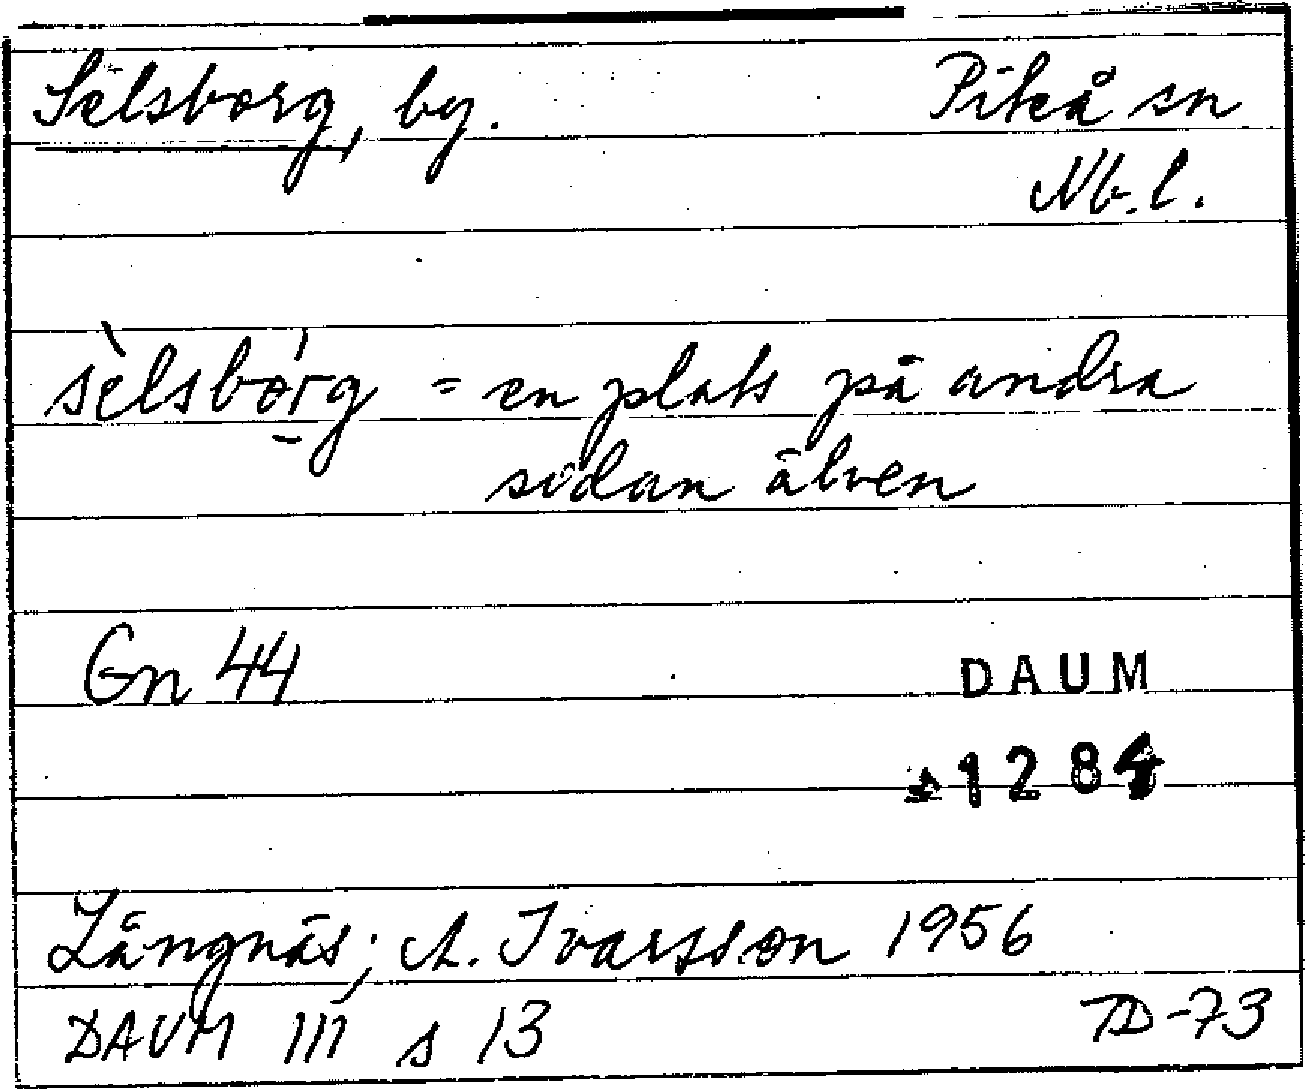 Selsborg, by. Piteå sn
Nb. l.
sèlsbórg = en plats på andra
sidan älven
Gn 44 DAUM
1284
Långnäs; A. Ivarsson 1956
DAUM 111 s 13 TD-73